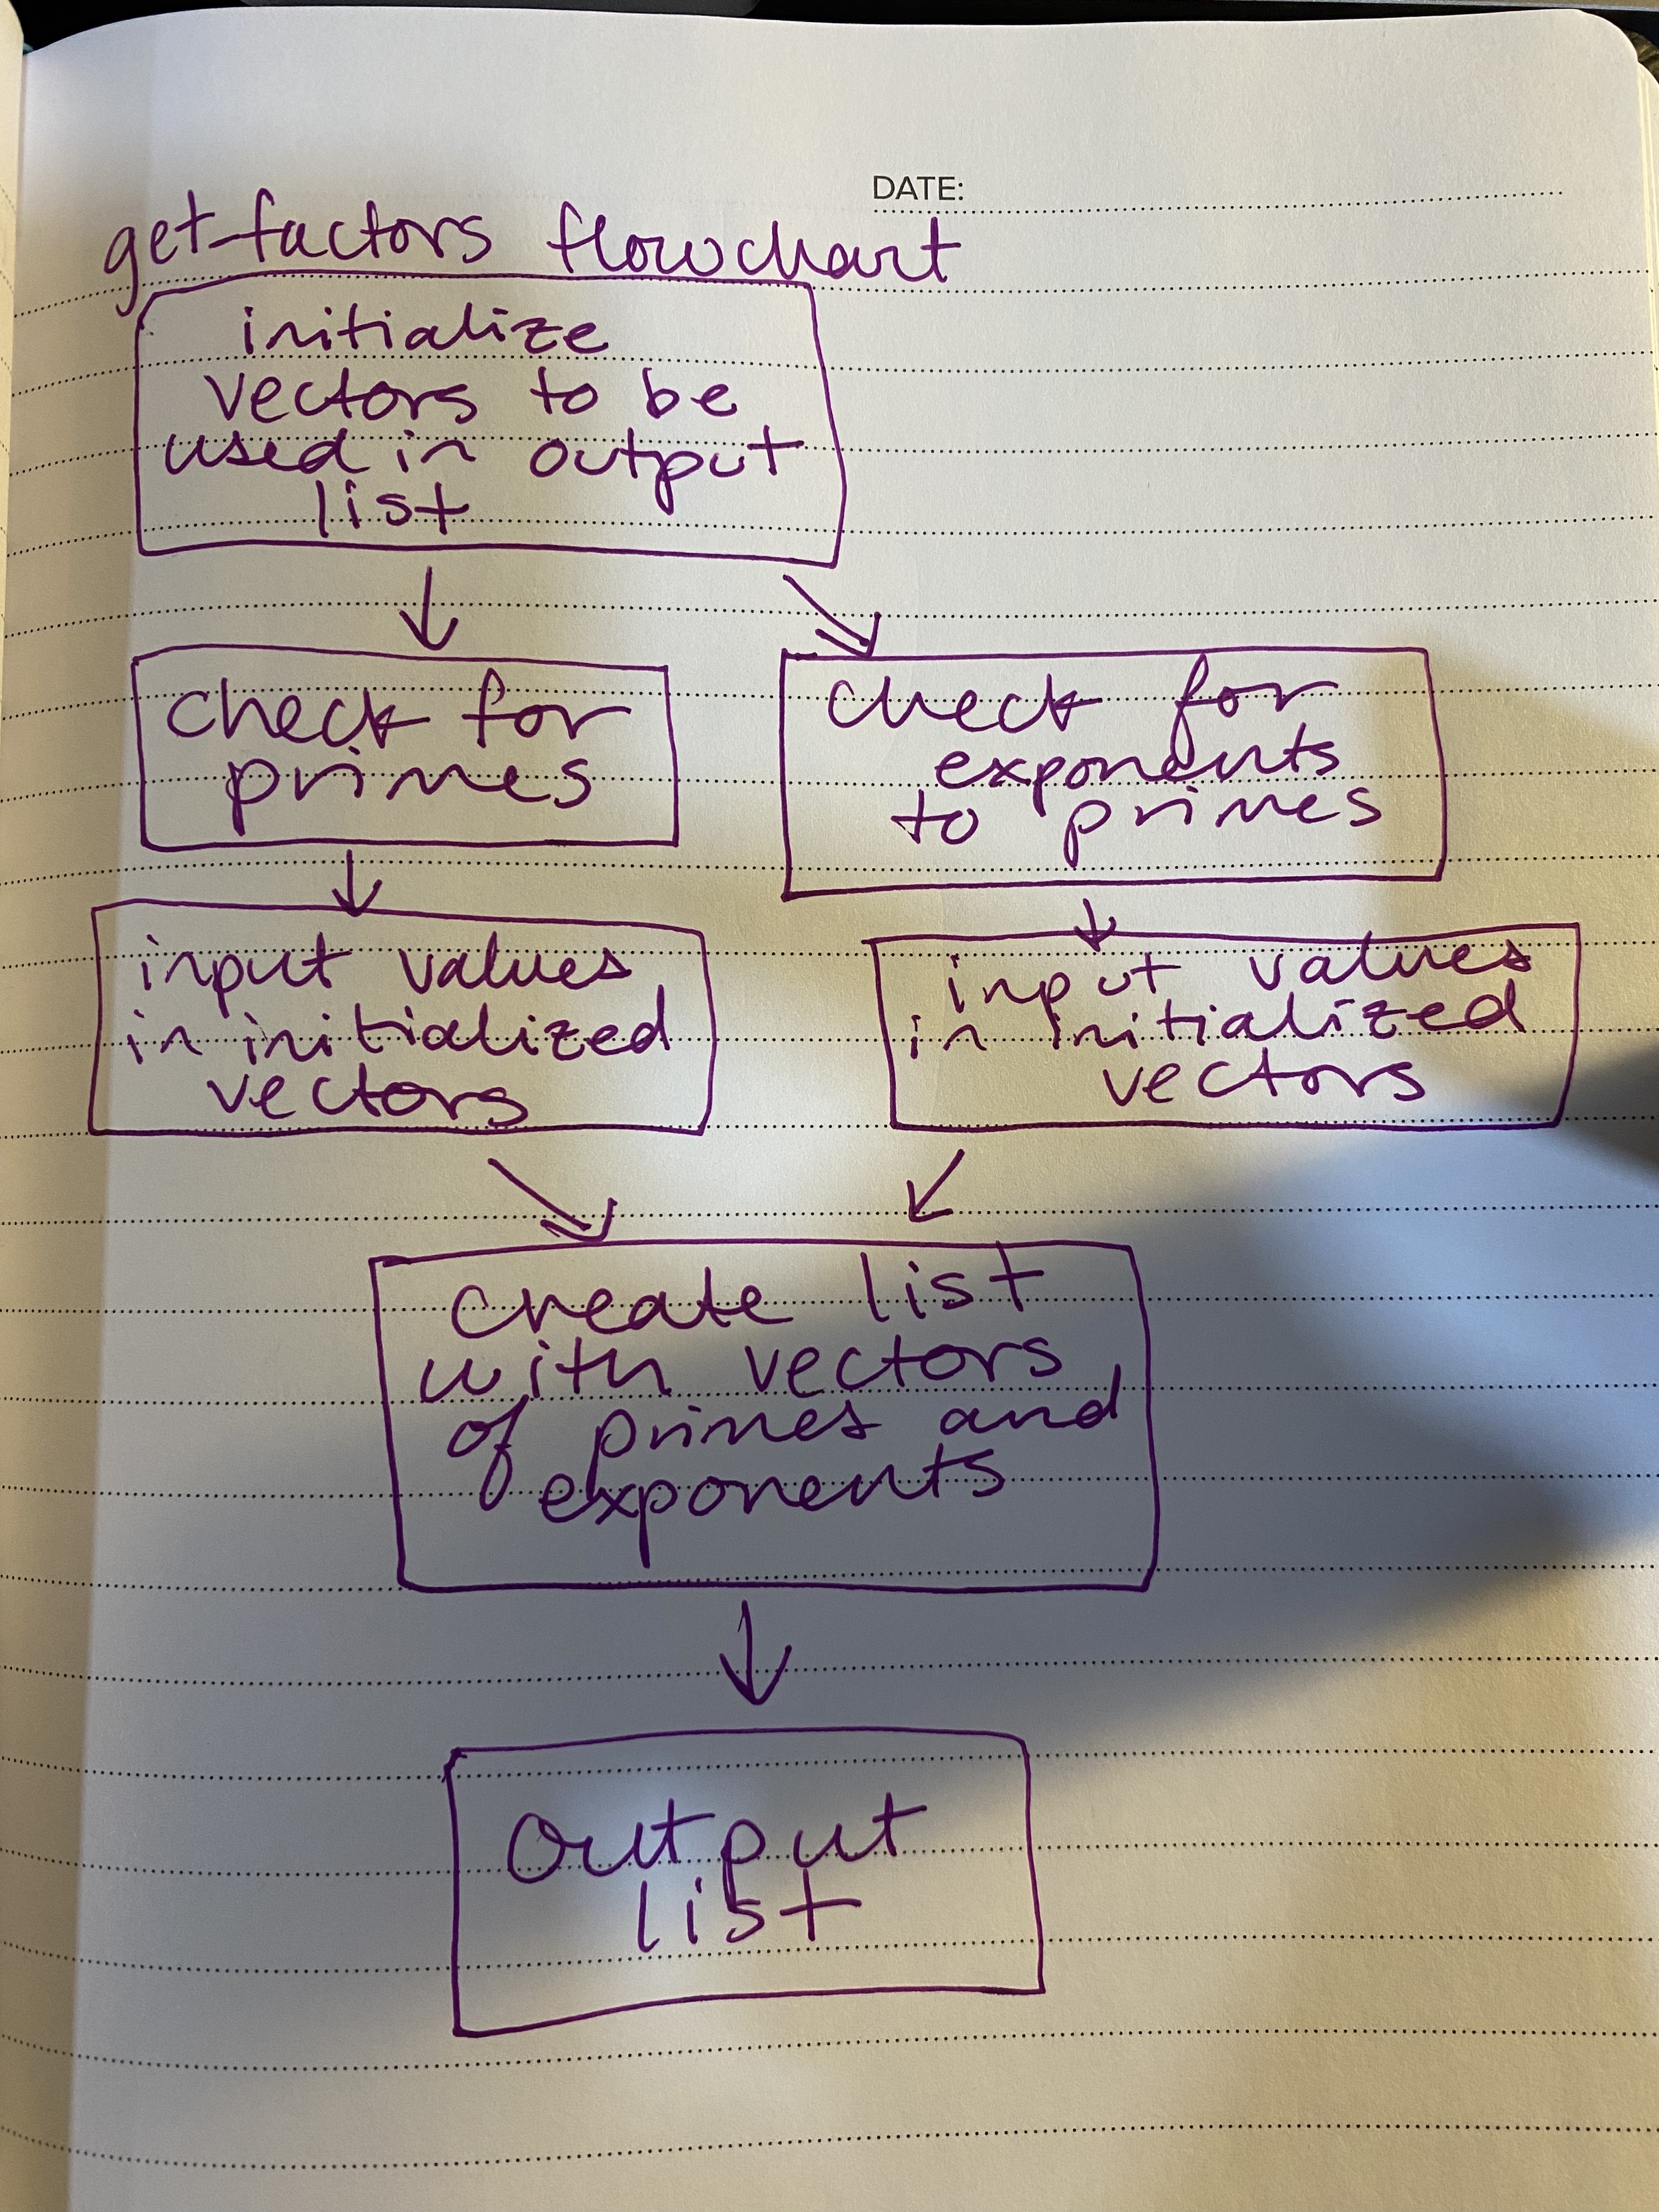 DATE:
get-factors flowchart
initialize
vectors to be
used in output
list
check for
primes
check for
exponents
to primes
input values
in initialized
vectors
input values
in initialized
vectors
create list
with vectors
of primes and
exponents
output
list